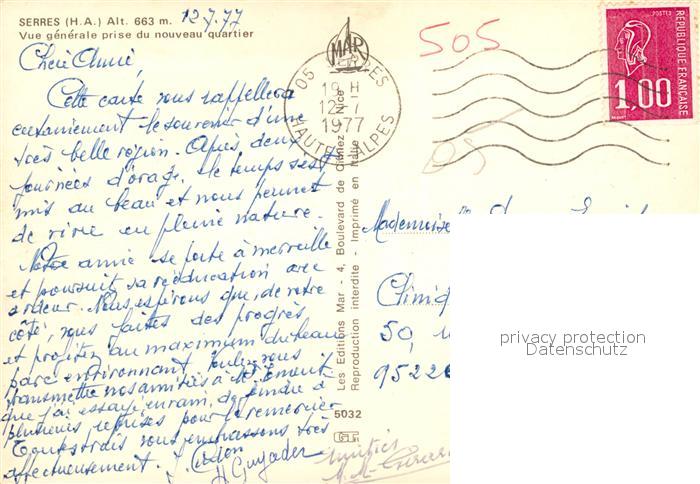 SERRES (H.A.) Alt. 663 m. 12.7.77
Vue générale prise du nouveau quartier
Chère Amie,
Cette carte vous rappellera
certainement le souvenir d'une
très belle région. Après deux
journées d'orage, le temps s'est
mis au beau et nous permet
de vivre en pleine nature.
Notre amie se porte à merveille
et poursuit sa rééducation avec
ardeur. Nous espérons que, de votre
côté, vous faites des progrès
et profitez au maximum du beau
parc environnant. Voulez-vous
transmettre nos amitiés à
que j'ai essayé en vain, de joindre à
plusieurs reprises pour le remercier
Tous trois vous embrassons très
affectueusement.
H Guyader
amitiés
Les Editions Mar - 4, Boulevard de Cimiez - Nice
Reproduction interdite - Imprimé en Italie
5032
MAR
05 SERRES
19 H
12-7
1977
HAUTES ALPES
505
05
POSTES
REPUBLIQUE FRANÇAISE
1,00
Mademoiselle
Cliniq
50,
95220
privacy protection
Datenschutz